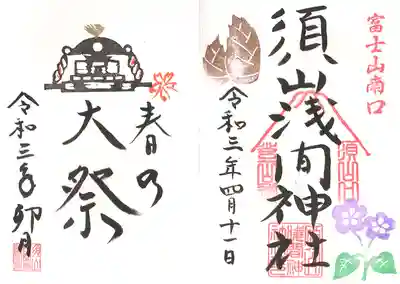 富士山南口
須山浅间神社
須山口
登山口
令和三年四月十一日
春の
大祭
令和三年卯月